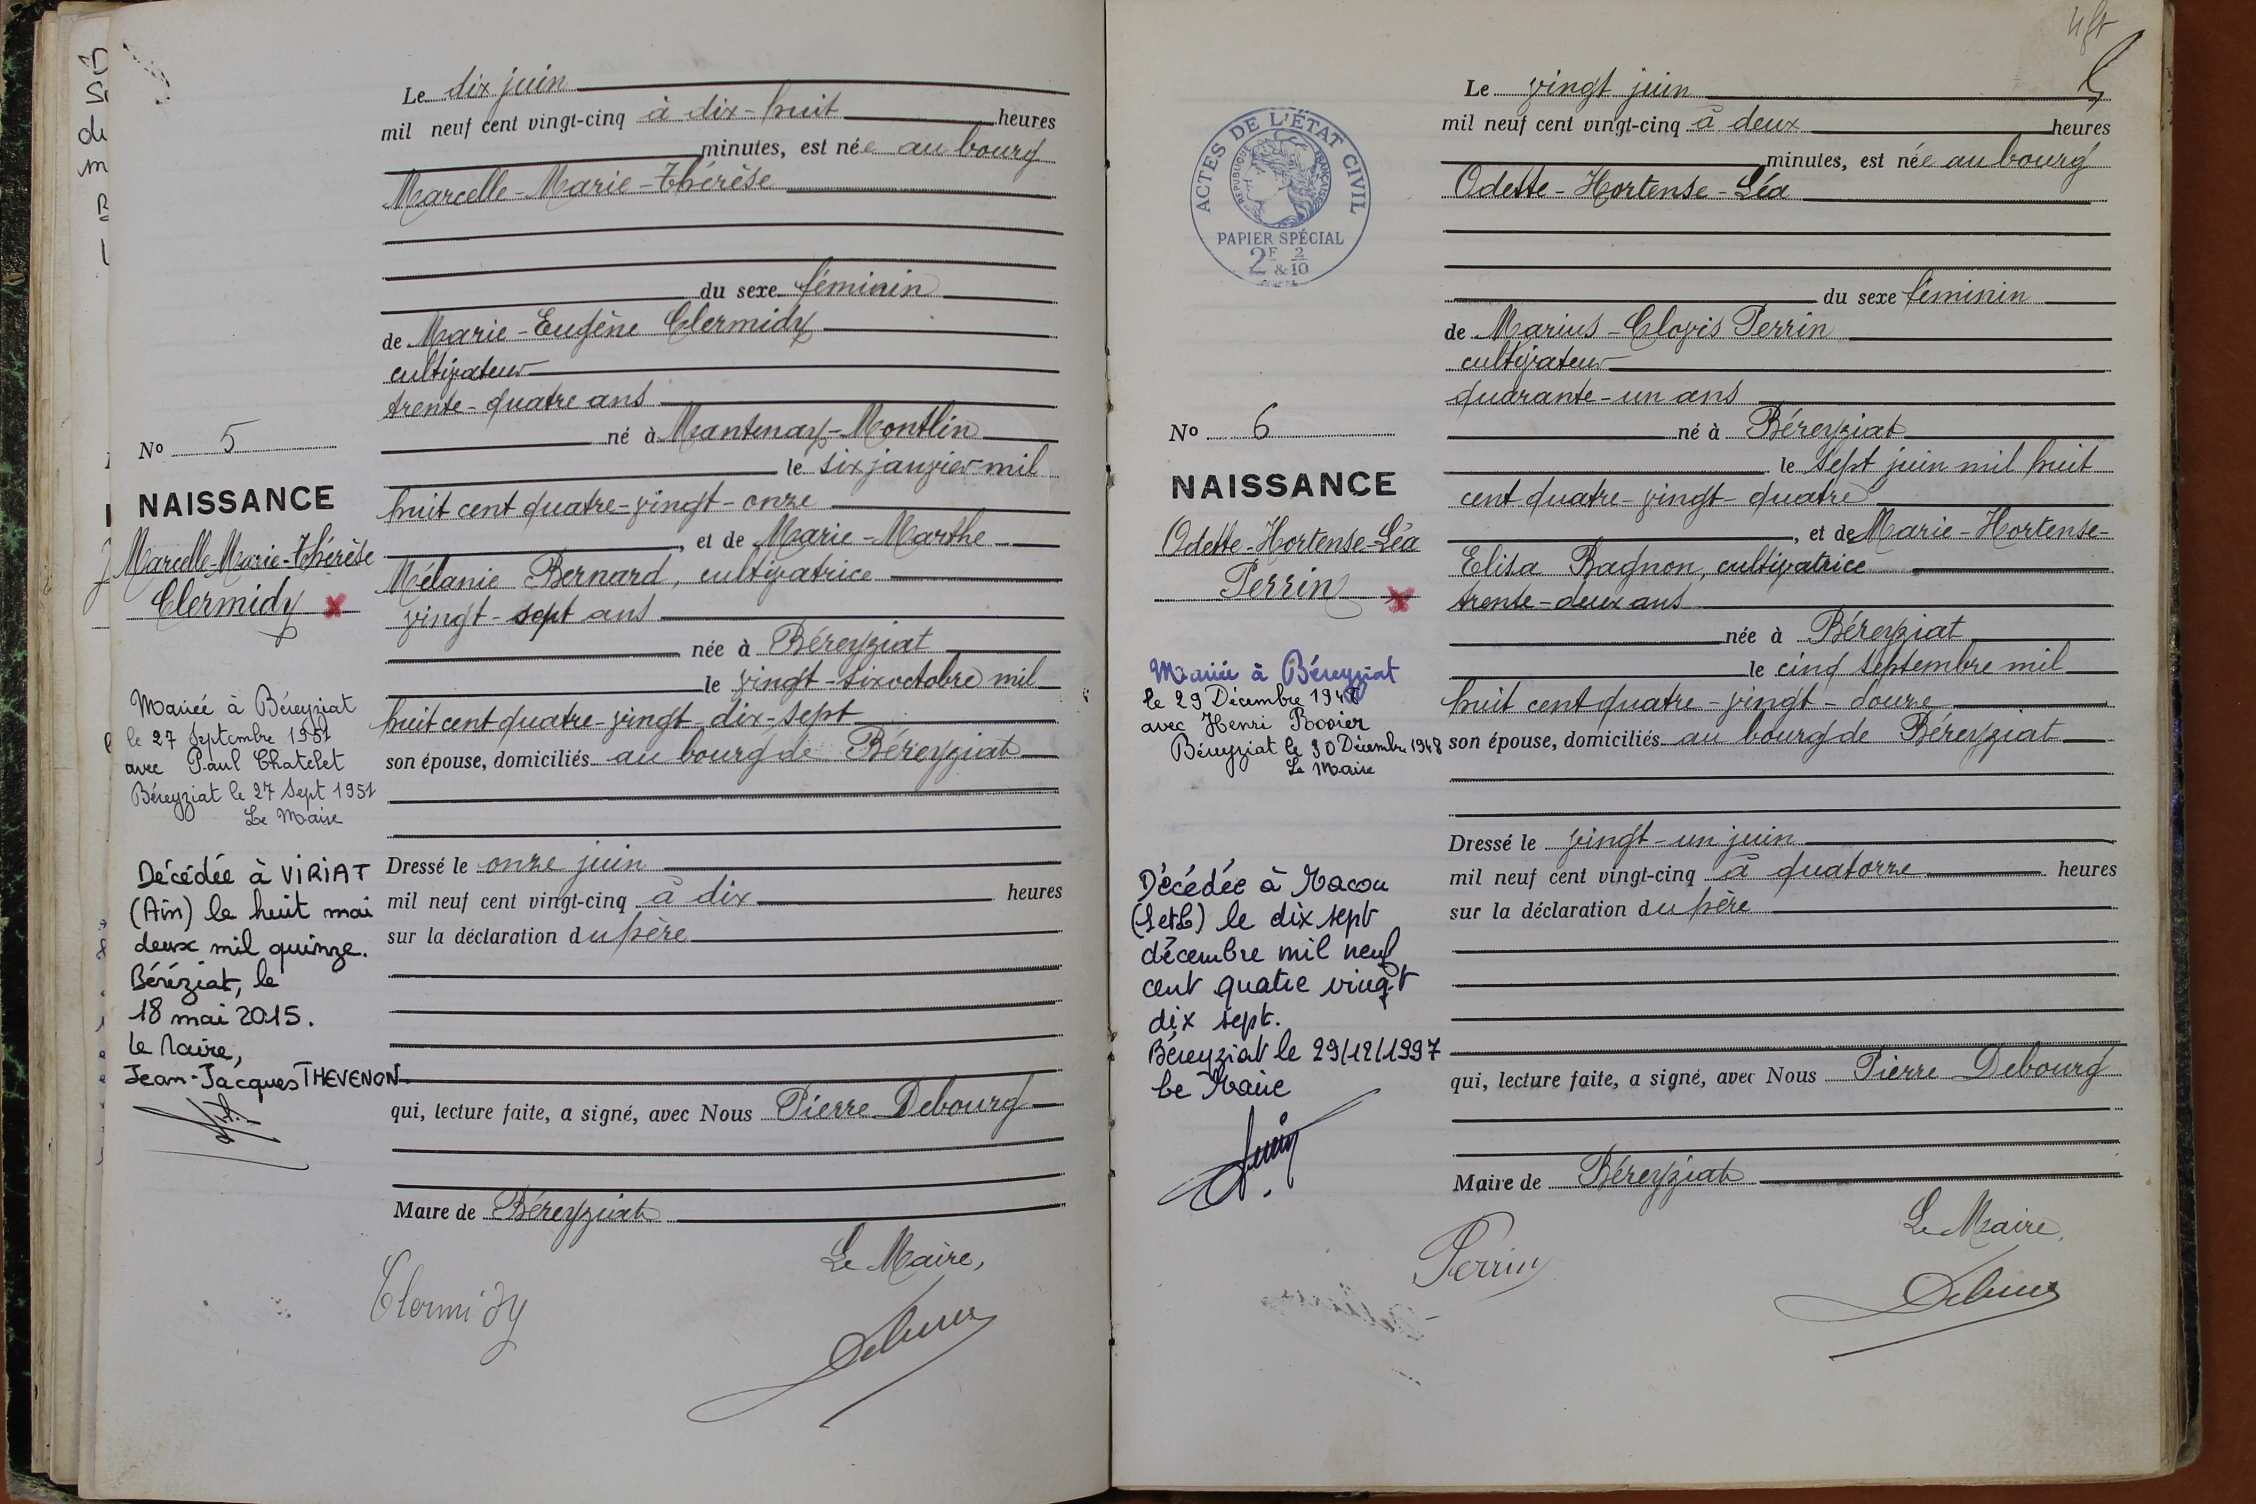 Le dix juin
mil neuf cent vingt-cinq à dix-huit heures
minutes, est née au bourg
Marcelle-Marie-Thérèse
du sexe féminin
de Marie-Eugène Clermidy
cultivateur
trente-quatre ans
né à Mantenay-Montlin
le six janvier mil
huit cent quatre-vingt-onze
, et de Marie-Marthe
Mélanie Bernard, cultivatrice
vingt-sept ans
née à Béreyziat
le vingt-six octobre mil
huit cent quatre-vingt-dix-sept
son épouse, domiciliés au bourg de Béreyziat
Dressé le onze juin
mil neuf cent vingt-cinq à dix heures
sur la déclaration du père
qui, lecture faite, a signé, avec Nous Pierre Debourg
Maire de Béreyziat
Le Maire,
Clermidy
No 5
NAISSANCE
Marcelle-Marie-Thérèse
Clermidy
Mariée à Béreyziat
le 27 Septembre 1951
avec Paul Chatelet
Béreyziat le 27 Sept 1951
Le Maire
Décédée à VIRIAT
(Ain) le huit mai
deux mil quinze.
Béréziat, le
18 mai 2015.
Le Maire,
Jean-Jacques THEVENON
Le vingt juin
mil neuf cent vingt-cinq à deux heures
minutes, est née au bourg
Odette-Hortense-Léa
du sexe féminin
de Marius-Clovis Perrin
cultivateur
quarante-un ans
né à Béreyziat
le sept juin mil huit
cent quatre-vingt-quatre
, et de Marie-Hortense-
Elisa Bagnon, cultivatrice
trente-deux ans
née à Béreyziat
le cinq septembre mil
huit cent quatre-vingt-douze
son épouse, domiciliés au bourg de Béreyziat
Dressé le vingt-un juin
mil neuf cent vingt-cinq à quatorze heures
sur la déclaration du père
qui, lecture faite, a signé, avec Nous Pierre Debourg
Maire de Béreyziat
Le Maire,
Perrin
ACTES DE L'ÉTAT CIVIL
RÉPUBLIQUE FRANÇAISE
PAPIER SPÉCIAL
2F & 2/10
No 6
NAISSANCE
Odette-Hortense-Léa
Perrin
Mariée à Béreyziat
le 29 Décembre 1948
avec Henri Bovier
Béreyziat le 30 Décembre 1948
Le Maire
Décédée à Macon
(S et L) le dix sept
décembre mil neuf
cent quatre vingt
dix sept.
Béreyziat le 29/12/1997
Le Maire